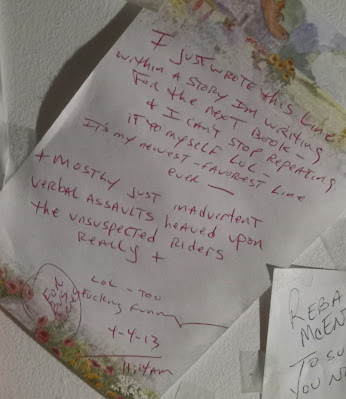 I just wrote this line
within a story Im writing
for the next Book -
& I can't stop repeating
it to myself LOL -
It's my newest - favorest line
ever —
+ mostly just inadvertent
verbal assaults heaved upon
the unsuspected riders
Really +
LOL - TOO
Fucking funny
4-4-13
11:14 AM
REBA
McEN
TO SU
YOU N